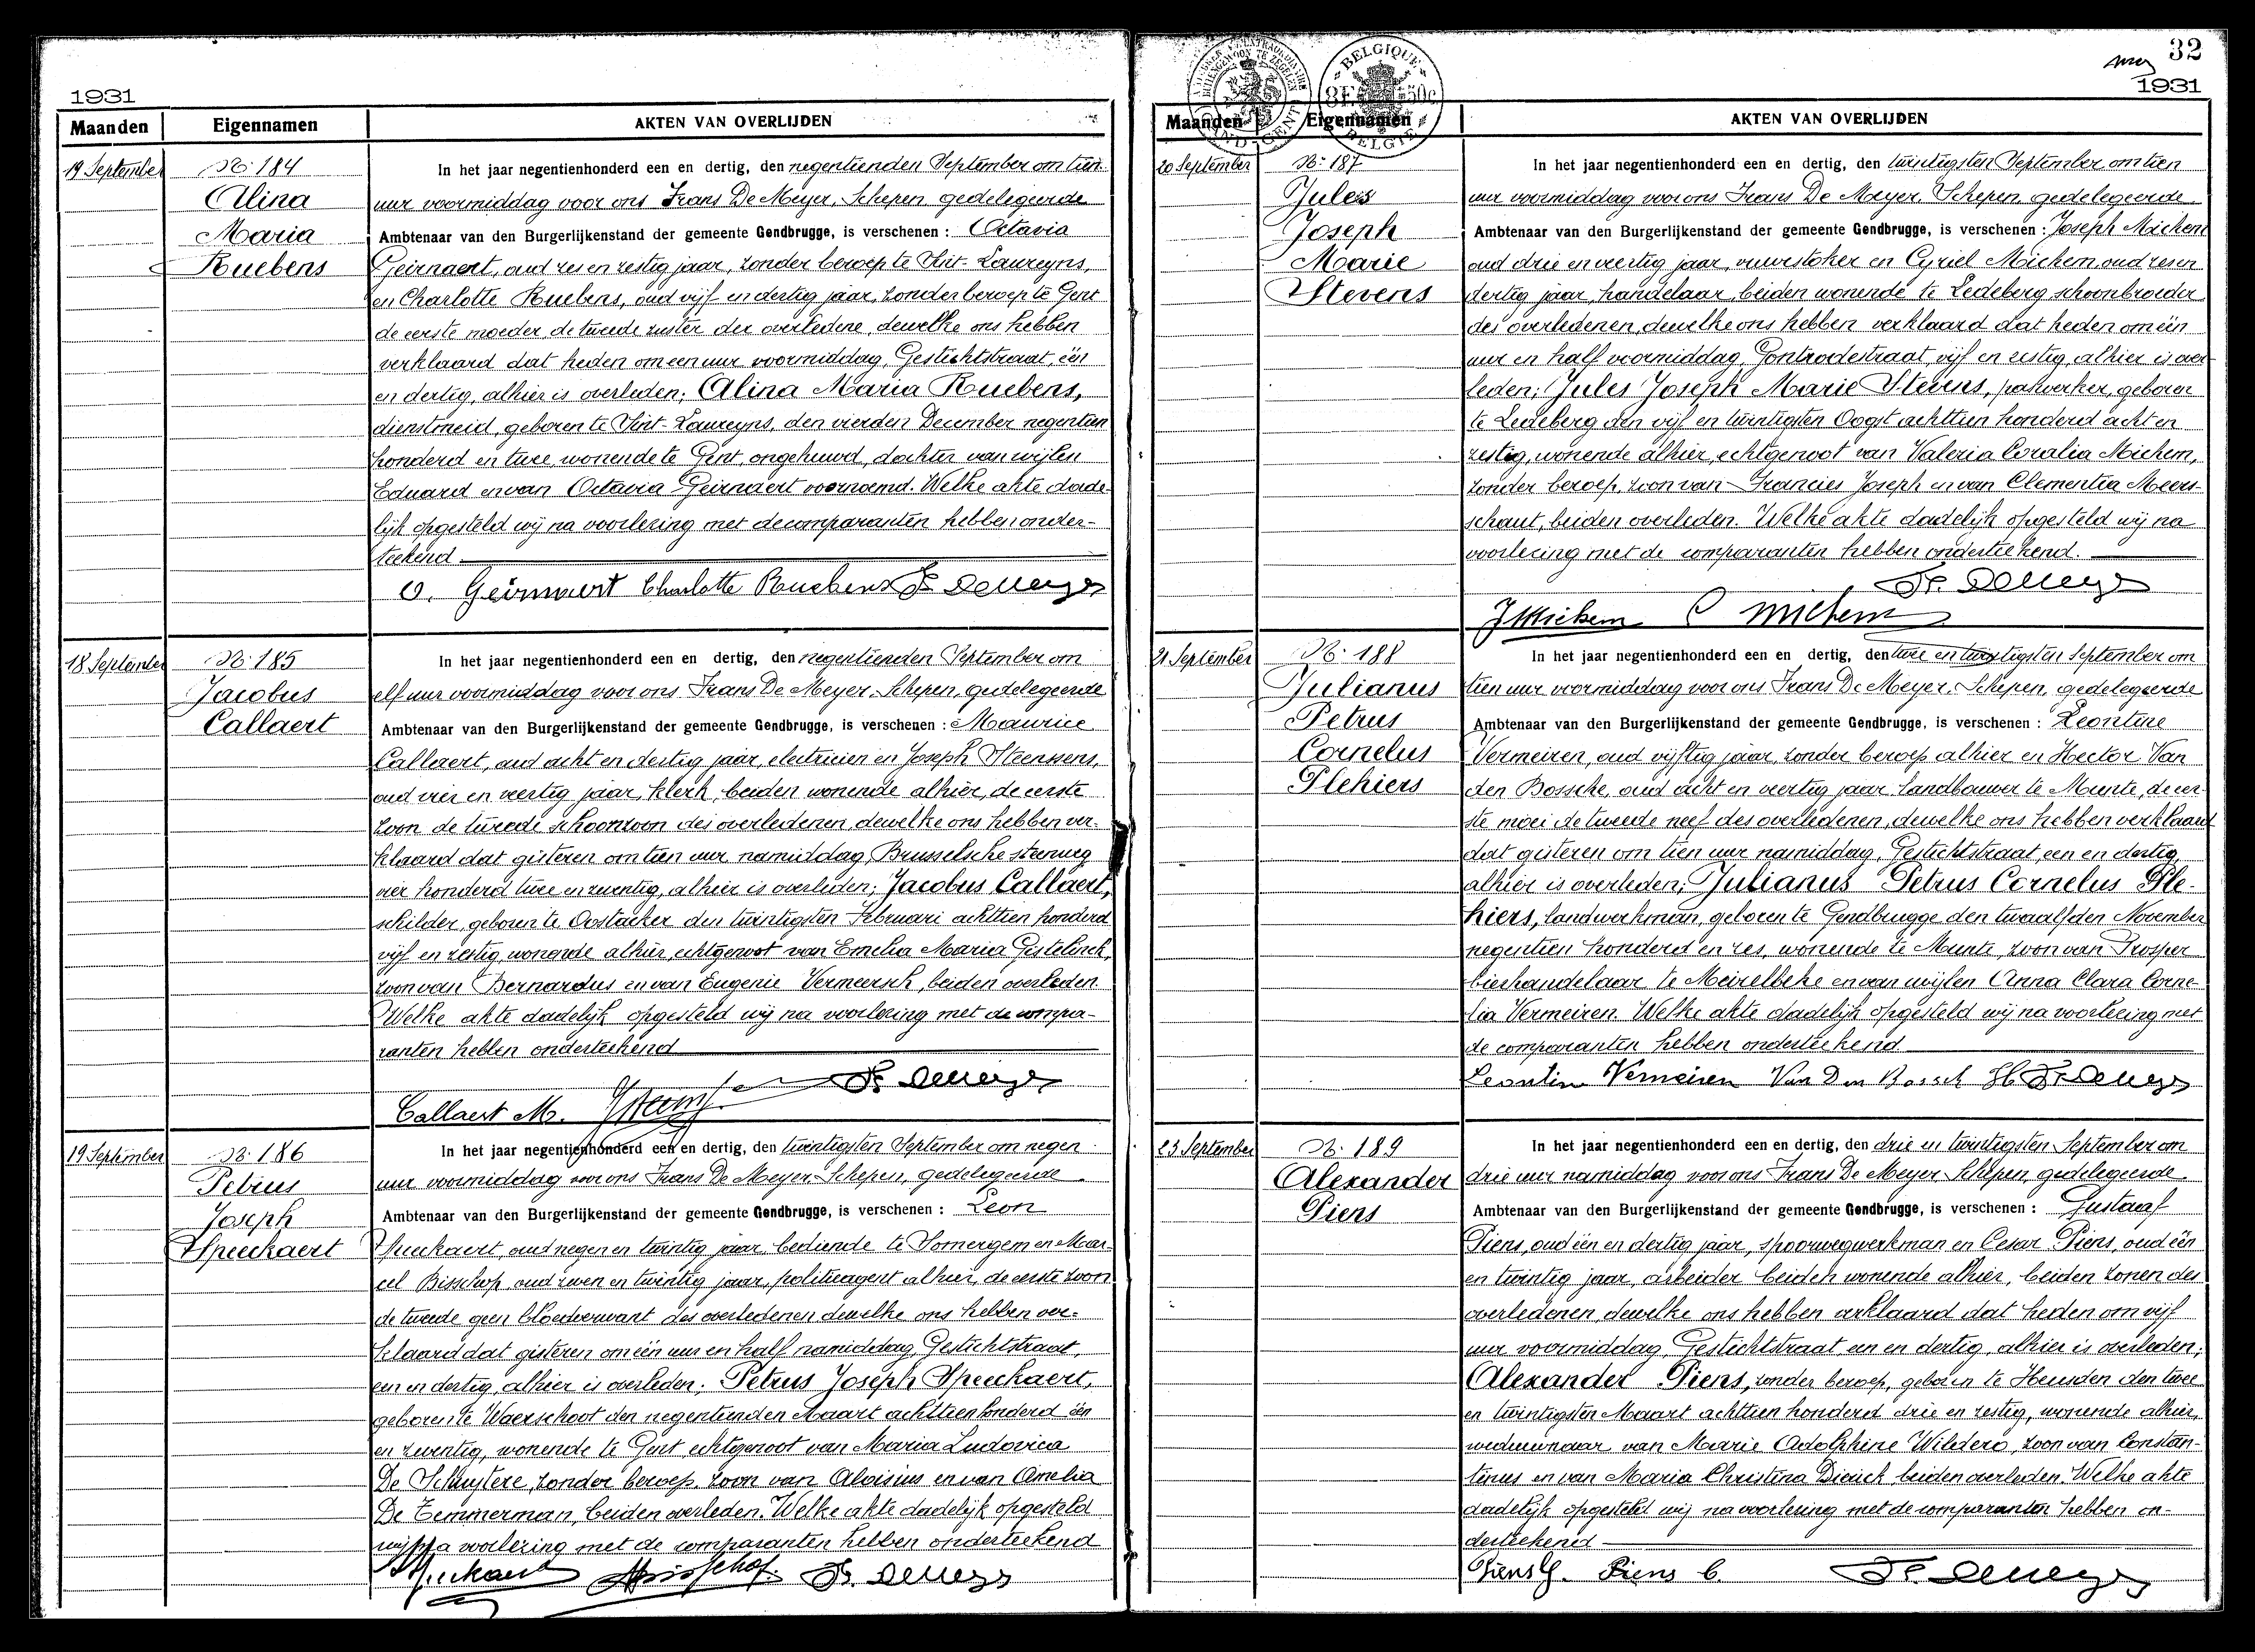 1931
Maanden Eigennamen AKTEN VAN OVERLIJDEN
19 September
No 184
Alina
Maria
Ruebens
In het jaar negentienhonderd een en dertig, den negentienden September om tien
uur voormiddag voor ons Frans De Meyer, Schepen, gedelegeerde
Ambtenaar van den Burgerlijkenstand der gemeente Gendbrugge, is verschenen : Octavia
Geirnaert, oud zes en zestig jaar, zonder beroep te Sint-Laureyns,
en Charlotte Ruebens, oud vijf en dertig jaar, zonder beroep te Gent
de eerste moeder, de tweede zuster der overledene, dewelke ons hebben
verklaard dat heden om een uur voormiddag, Gestichtstraat, één
en dertig, alhier is overleden; Alina Maria Ruebens,
dienstmeid, geboren te Sint-Laureyns, den vierden December negentien
honderd en twee, wonende te Gent, ongehuwd, dochter van wijlen
Eduard en van Octavia Geirnaert voornoemd. Welke akte dade-
lijk opgesteld wij na voorlezing met de comparanten hebben onder-
teekend
O. Geirnaert Charlotte Ruebens Fr. De Meyer
18 September
No 185
Jacobus
Callaert
In het jaar negentienhonderd een en dertig, den negentienden September om
elf uur voormiddag voor ons Frans De Meyer, Schepen, gedelegeerde
Ambtenaar van den Burgerlijkenstand der gemeente Gendbrugge, is verschenen : Maurice
Callaert, oud acht en dertig jaar, electricien en Joseph Steenssens,
oud vier en veertig jaar, klerk, beiden wonende alhier, de eerste
zoon de tweede schoonzoon des overledenen, dewelke ons hebben ver-
klaard dat gisteren om tien uur namiddag, Brusselsche steenweg
vier honderd twee en zeventig, alhier is overleden; Jacobus Callaert,
schilder, geboren te Oostacker den twintigsten Februari achttien honderd
vijf en zestig, wonende alhier, echtgenoot van Emelia Maria Gestelinck,
zoon van Bernardus en van Eugenie Vermeersch, beiden overleden.
Welke akte dadelijk opgesteld wij na voorlezing met de compa-
ranten hebben onderteekend
Fr. De Meyer
Callaert M.
19 September
No 186
Petrus
Joseph
Speeckaert
In het jaar negentienhonderd een en dertig, den twintigsten September om negen
uur voormiddag voor ons Frans De Meyer, Schepen, gedelegeerde
Ambtenaar van den Burgerlijkenstand der gemeente Gendbrugge, is verschenen : Leon
Speeckaert, oud negen en twintig jaar, bediende te Somergem en Mar-
cel Bisschop, oud zeven en twintig jaar, politieagent alhier, de eerste zoon
de tweede geen bloedverwant des overledenen dewelke ons hebben ver-
klaard dat gisteren om één uur en half namiddag, Gestichtstraat,
een en dertig, alhier is overleden; Petrus Joseph Speeckaert,
geboren te Waerschoot den negentienden Maart achttien honderd één
en zeventig, wonende te Gent, echtgenoot van Maria Ludovica
De Schuytere, zonder beroep, zoon van Aloisius en van Amelia
De Temmerman, beiden overleden. Welke akte dadelijk opgesteld
wij na voorlezing met de comparanten hebben onderteekend
Speeckaert Bisschop. Fr. De Meyer
32
1931
BELGIQUE 3F 50c BELGIE
Maanden Eigennamen AKTEN VAN OVERLIJDEN
20 September
No 187
Jules
Joseph
Marie
Stevens
In het jaar negentienhonderd een en dertig, den twintigsten September om tien
uur voormiddag voor ons Frans De Meyer, Schepen, gedelegeerde
Ambtenaar van den Burgerlijkenstand der gemeente Gendbrugge, is verschenen : Joseph Michem
oud drie en veertig jaar, vuurstoker en Cyriel Michem, oud zes en
dertig jaar, handelaar, beiden wonende te Ledeberg schoonbroeder
des overledenen, dewelke ons hebben verklaard dat heden om één
uur en half voormiddag, Gontrodestraat, vijf en zestig, alhier is over-
leden; Jules Joseph Marie Stevens, paswerker, geboren
te Ledeberg den vijf en twintigsten Oogst achttien honderd acht en
zestig, wonende alhier, echtgenoot van Valeria Coralia Michem,
zonder beroep, zoon van Francies Joseph en van Clementia Meers-
schaut, beiden overleden. Welke akte dadelijk opgesteld wij na
voorlezing met de comparanten hebben onderteekend.
Fr. De Meyer
J Michem C Michem
21 September
No 188
Julianus
Petrus
Cornelus
Plehiers
In het jaar negentienhonderd een en dertig, den twee en twintigsten September om
tien uur voormiddag voor ons Frans De Meyer, Schepen, gedelegeerde
Ambtenaar van den Burgerlijkenstand der gemeente Gendbrugge, is verschenen : Leontine
Vermeiren, oud vijftig jaar, zonder beroep alhier en Hector Van
den Bossche, oud acht en veertig jaar, landbouwer te Munte, de eer-
ste moei de tweede neef des overledenen, dewelke ons hebben verklaard
dat gisteren om tien uur namiddag, Gestichtstraat, een en dertig
alhier is overleden; Julianus Petrus Cornelus Ple-
hiers, landwerkman, geboren te Gendbrugge den twaalfden November
negentien honderd en zes, wonende te Munte, zoon van Prosper
bierhandelaar te Meirelbeke en van wijlen Anna Clara Corne-
lia Vermeiren. Welke akte dadelijk opgesteld wij na voorlezing met
de comparanten hebben onderteekend
Leontine Vermeiren Van Den Bossch H. Fr. De Meyer
23 September
No 189
Alexander
Piens
In het jaar negentienhonderd een en dertig, den drie en twintigsten September om
drie uur namiddag voor ons Frans De Meyer, Schepen, gedelegeerde
Ambtenaar van den Burgerlijkenstand der gemeente Gendbrugge, is verschenen : Gustaaf
Piens, oud één en dertig jaar, spoorwegwerkman en Cesar Piens, oud één
en twintig jaar, arbeider beiden wonende alhier, beiden zonen des
overledenen, dewelke ons hebben verklaard dat heden om vijf
uur voormiddag, Gestichtstraat een en dertig, alhier is overleden;
Alexander Piens, zonder beroep, geboren te Heusden den twee
en twintigsten Maart achttien honderd drie en zestig, wonende alhier,
weduwnaar van Marie Adolphine Wildero, zoon van Constan-
tinus en van Maria Christina Dierick, beiden overleden. Welke akte
dadelijk opgesteld wij na voorlezing met de comparanten hebben on-
derteekend
Piens G. Piens C. Fr. De Meyer